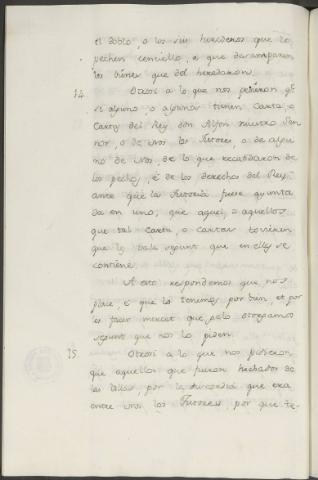 el doblo, o los sus herederos que lo
pechen cencillo, e que desamparen
los bienes que del heredaron.
14. Otrosi a lo que nos pidieron q.e
si alguno, o algunos tienen Carta, o
Cartas del Rey don Alfon nuestro Sen-
nor, o de nos los Tutores, o de algu-
no de nos, de lo que recabdaron de
los pechos, é de los derechos del Rey
ante que la Tutoria fuese ayunta
da en uno; que aquel, o aquellos
que tal carta, o cartas tovieren
que les vala segunt que en ellas se
contiene.
A esto respondemos que nos
place, e que lo tenemos por bien, et por
les facer mercet que gelo otorgamos
segunt que nos lo piden.
15. Otrosi a lo que nos pidieron
que aquellos que fueron hechados de
las Villas, por la discordia que era
entre nos los Tutores, por que te-